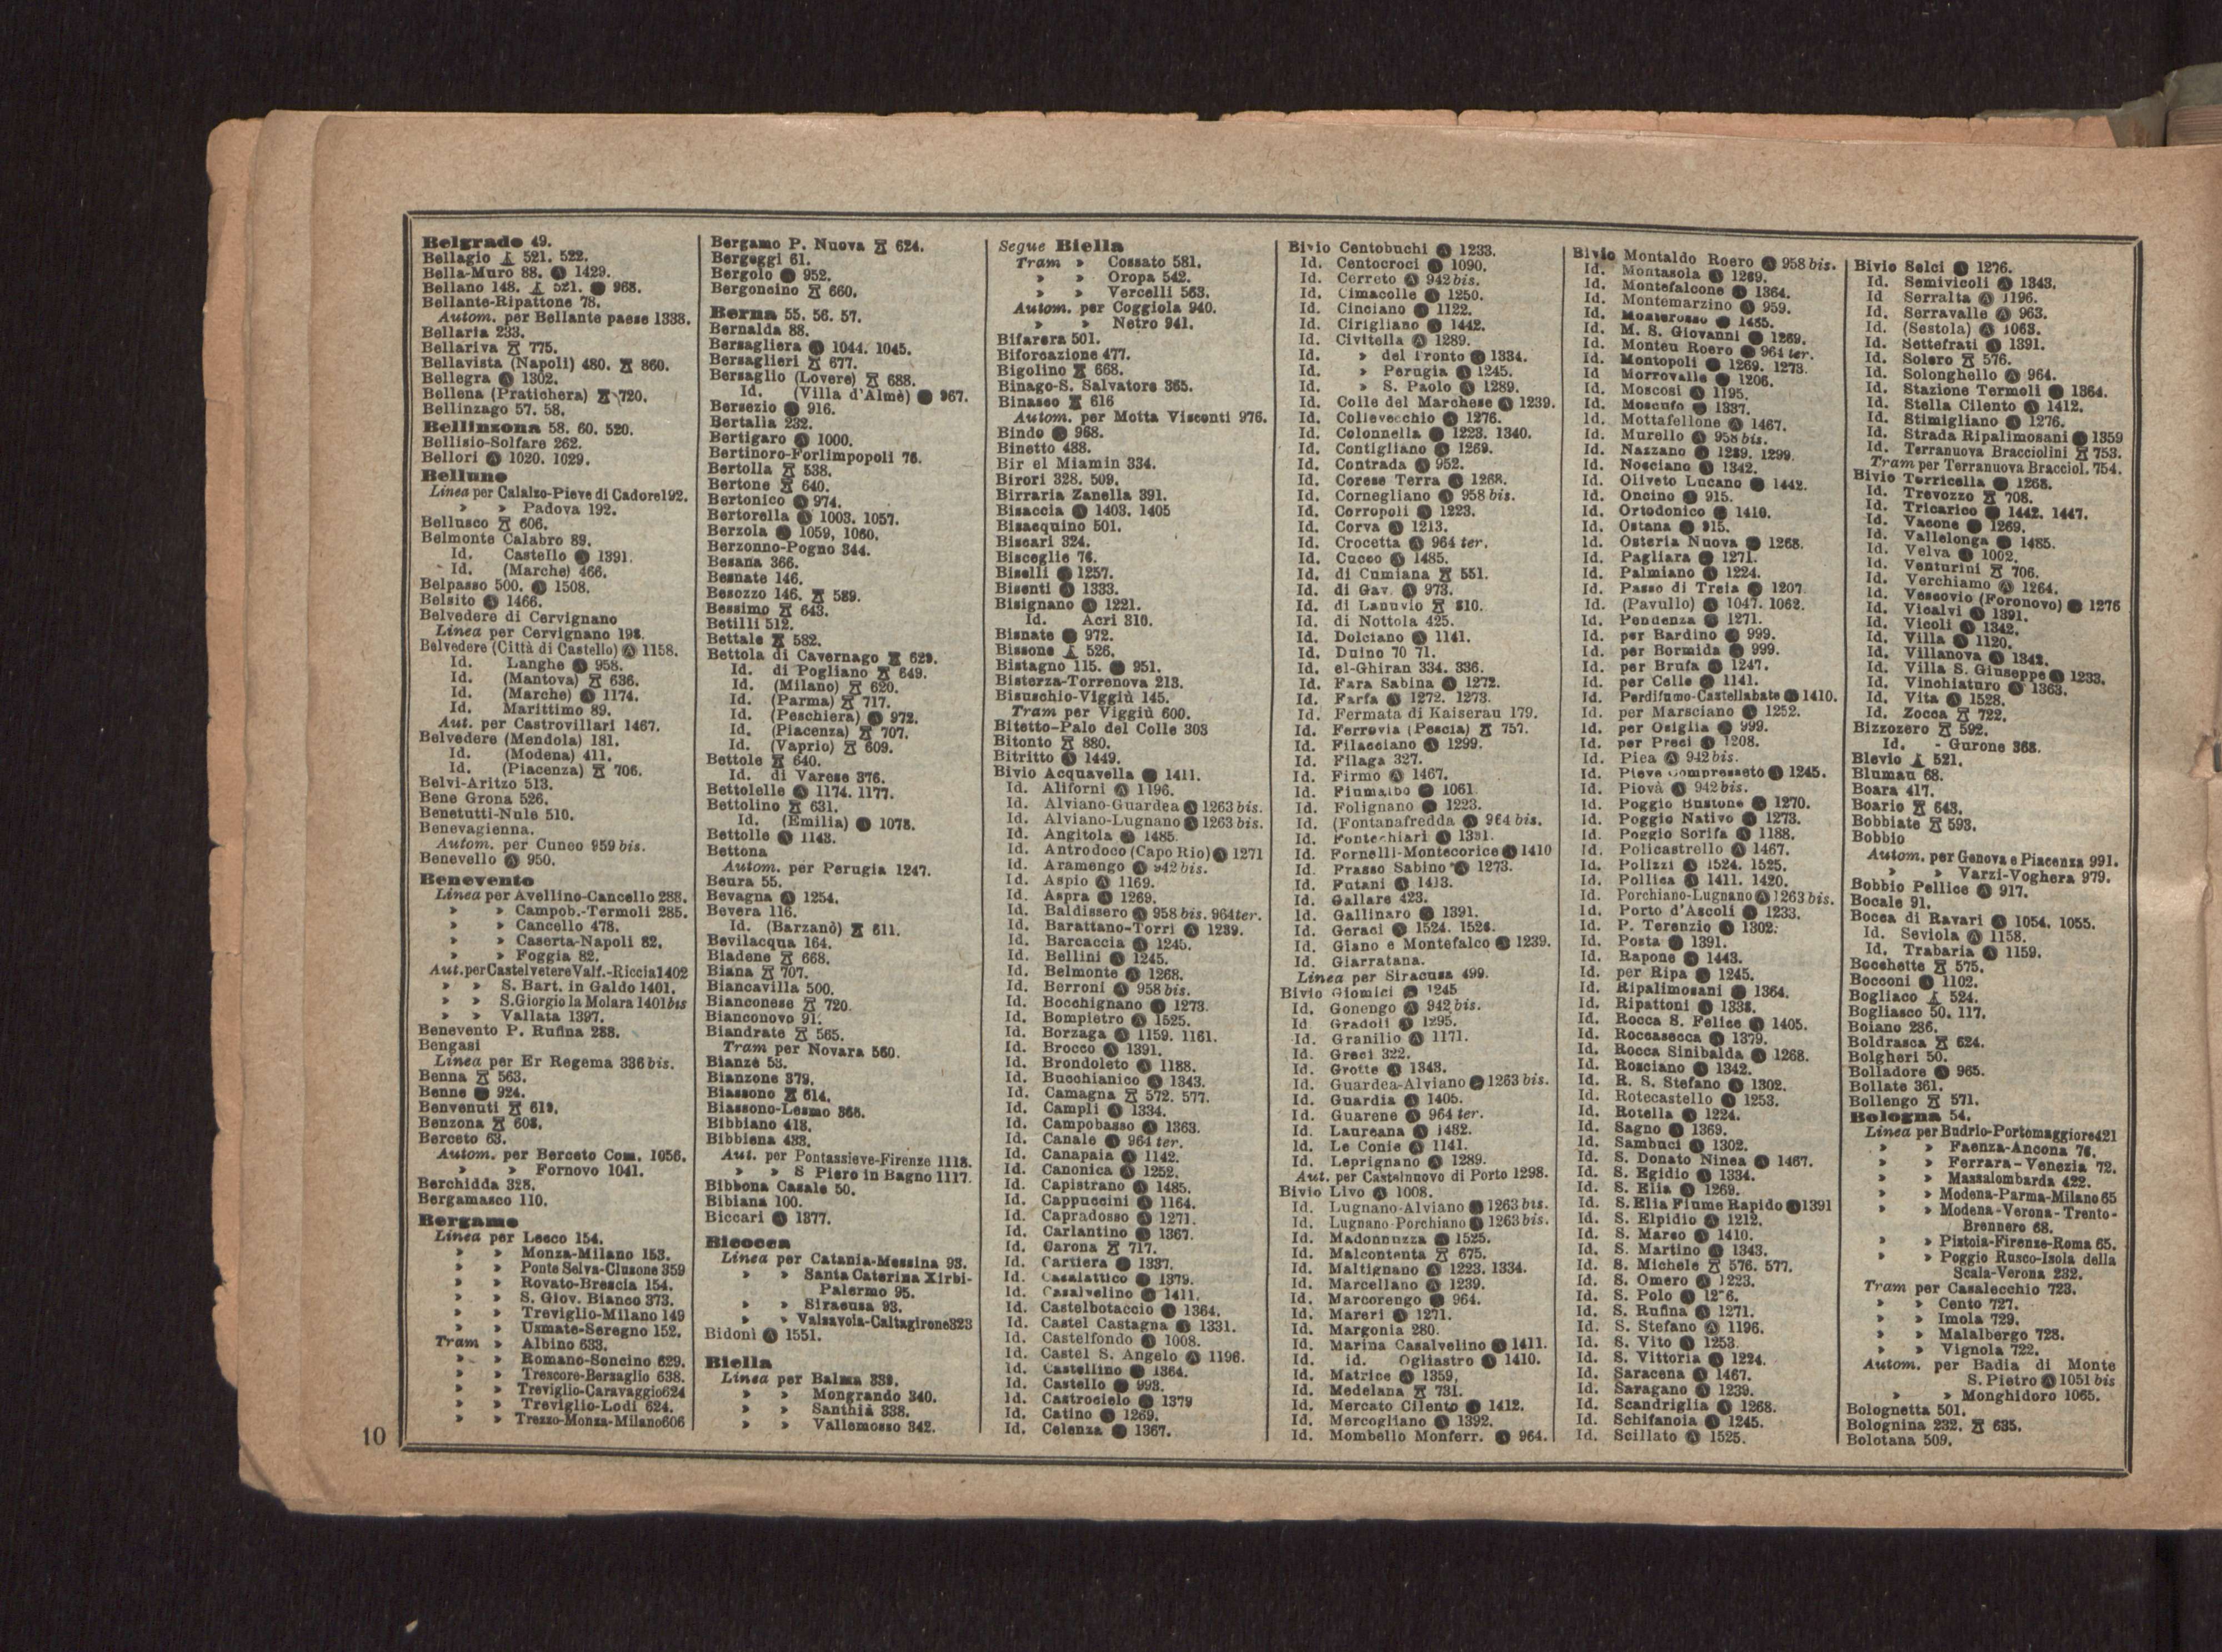 Belgrado 49.
Bellagio 521. 522.
Bella-Muro 88. Ⓐ 1429.
Bellano 148. 521. Ⓐ 968.
Bellante-Ripattone 78.
Autom. per Bellante paese 1333.
Bellaria 233.
Bellariva 775.
Bellavista (Napoli) 480. 860.
Bellegra Ⓐ 1302.
Bellena (Pratichera) 720.
Bellinzago 57. 58.
Bellinzona 58. 60. 520.
Bellisio-Solfare 262.
Bellori Ⓐ 1020. 1029.
Belluno
Linea per Calalzo-Pieve di Cadore 192.
» » Padova 192.
Bellusco 606.
Belmonte Calabro 89.
Id. Castello Ⓐ 1391.
Id. (Marche) 466.
Belpasso 500. Ⓐ 1508.
Belsito Ⓐ 1466.
Belvedere di Cervignano
Linea per Cervignano 198.
Belvedere (Città di Castello) Ⓐ 1158.
Id. Langhe Ⓐ 958.
Id. (Mantova) 636.
Id. (Marche) Ⓐ 1174.
Id. Marittimo 89.
Aut. per Castrovillari 1467.
Belvedere (Mendola) 181.
Id. (Modena) 411.
Id. (Piacenza) 706.
Belvi-Aritzo 513.
Bene Grona 526.
Benetutti-Nule 510.
Benevagienna.
Autom. per Cuneo 959 bis.
Benevello Ⓐ 950.
Benevento
Linea per Avellino-Cancello 288.
» » Campob.-Termoli 285.
» » Cancello 478.
» » Caserta-Napoli 82.
» » Foggia 82.
Aut. per Castelvetere Valf.-Riccia 1402
» » S. Bart. in Galdo 1401.
» » S. Giorgio la Molara 1401 bis
» » Vallata 1397.
Benevento P. Rufina 288.
Bengasi
Linea per Er Regema 336 bis.
Benna 563.
Benne Ⓐ 924.
Benvenuti 619.
Benzona 608.
Berceto 63.
Autom. per Berceto Com. 1056.
» » Fornovo 1041.
Berchidda 328.
Bergamasco 110.
Bergamo
Linea per Lecco 154.
» » Monza-Milano 153.
» » Ponte Selva-Clusone 359
» » Rovato-Brescia 154.
» » S. Giov. Bianco 373.
» » Treviglio-Milano 149
» » Usmate-Seregno 152.
Tram » Albino 633.
» » Romano-Soncino 629.
» » Trescore-Bersaglio 638.
» » Treviglio-Caravaggio 624
» » Treviglio-Lodi 624.
» » Trezzo-Monza-Milano 606
10
Bergamo P. Nuova 624.
Bergeggi 61.
Bergolo Ⓐ 952.
Bergoncino 660.
Berna 55. 56. 57.
Bernalda 88.
Bersagliera Ⓐ 1044. 1045.
Bersaglieri 677.
Bersaglio (Lovere) 688.
Id. (Villa d'Almè) Ⓐ 967.
Bersezio Ⓐ 916.
Bertalia 232.
Bertigaro Ⓐ 1000.
Bertinoro-Forlimpopoli 76.
Bertolla 538.
Bertone 640.
Bertonico Ⓐ 974.
Bertorella Ⓐ 1003. 1057.
Berzola Ⓐ 1059, 1060.
Berzonno-Pogno 344.
Besana 366.
Besnate 146.
Besozzo 146. 589.
Bessimo 643.
Betilli 512.
Bettale 582.
Bettola di Cavernago 629.
Id. di Pogliano 649.
Id. (Milano) 620.
Id. (Parma) 717.
Id. (Peschiera) Ⓐ 972.
Id. (Piacenza) 707.
Id. (Vaprio) 609.
Bettole 640.
Id. di Varese 376.
Bettolelle Ⓐ 1174. 1177.
Bettolino 631.
Id. (Emilia) Ⓐ 1078.
Bettolle Ⓐ 1143.
Bettona
Autom. per Perugia 1247.
Beura 55.
Bevagna Ⓐ 1254.
Bevera 116.
Id. (Barzanò) 611.
Bevilacqua 164.
Biadene 668.
Biana 707.
Biancavilla 500.
Bianconese 720.
Bianconovo 91.
Biandrate 565.
Tram per Novara 560.
Bianzè 53.
Bianzone 379.
Biassono 614.
Biassono-Lesmo 366.
Bibbiano 418.
Bibbiena 433.
Aut. per Pontassieve-Firenze 1118.
» » S Piero in Bagno 1117.
Bibbona Casale 50.
Bibiana 100.
Biccari Ⓐ 1377.
Bicocca
Linea per Catania-Messina 93.
» » Santa Caterina Xirbi-
Palermo 95.
» » Siracusa 93.
» » Valsavoia-Caltagirone 323
Bidonì Ⓐ 1551.
Biella
Linea per Balma 339.
» » Mongrando 340.
» » Santhià 338.
» » Vallemosso 342.
Segue Biella
Tram » Cossato 581.
» » Oropa 542.
» » Vercelli 563.
Autom. per Coggiola 940.
» » Netro 941.
Bifarera 501.
Biforcazione 477.
Bigolino 668.
Binago-S. Salvatore 365.
Binasco 616
Autom. per Motta Visconti 976.
Bindo Ⓐ 968.
Binetto 488.
Bir el Miamin 334.
Birori 328. 509.
Birraria Zanella 391.
Bisaccia Ⓐ 1403. 1405
Bisacquino 501.
Biscari 324.
Bisceglie 76.
Biselli Ⓐ 1257.
Bisenti Ⓐ 1333.
Bisignano Ⓐ 1221.
Id. Acri 310.
Bisnate Ⓐ 972.
Bissone 526.
Bistagno 115. Ⓐ 951.
Bisterza-Torrenova 213.
Bisuschio-Viggiù 145.
Tram per Viggiù 600.
Bitetto-Palo del Colle 303
Bitonto 880.
Bitritto Ⓐ 1449.
Bivio Acquavella Ⓐ 1411.
Id. Aliforni Ⓐ 1196.
Id. Alviano-Guardea Ⓐ 1263 bis.
Id. Alviano-Lugnano Ⓐ 1263 bis.
Id. Angitola Ⓐ 1485.
Id. Antrodoco (Capo Rio) Ⓐ 1271
Id. Aramengo Ⓐ 942 bis.
Id. Aspio Ⓐ 1169.
Id. Aspra Ⓐ 1269.
Id. Baldissero Ⓐ 958 bis. 964 ter.
Id. Barattano-Torri Ⓐ 1239.
Id. Barcaccia Ⓐ 1245.
Id. Bellini Ⓐ 1245.
Id. Belmonte Ⓐ 1268.
Id. Berroni Ⓐ 958 bis.
Id. Bocchignano Ⓐ 1273.
Id. Bompietro Ⓐ 1525.
Id. Borzaga Ⓐ 1159. 1161.
Id. Brocco Ⓐ 1391.
Id. Brondoleto Ⓐ 1188.
Id. Bucchianico Ⓐ 1343.
Id. Camagna 572. 577.
Id. Campli Ⓐ 1334.
Id. Campobasso Ⓐ 1363.
Id. Canale Ⓐ 964 ter.
Id. Canapaia Ⓐ 1142.
Id. Canonica Ⓐ 1252.
Id. Capistrano Ⓐ 1485.
Id. Cappuccini Ⓐ 1164.
Id. Capradosso Ⓐ 1271.
Id. Carlantino Ⓐ 1367.
Id. Carona 717.
Id. Cartiera Ⓐ 1337.
Id. Casalattico Ⓐ 1379.
Id. Casalvelino Ⓐ 1411.
Id. Castelbotaccio Ⓐ 1364.
Id. Castel Castagna Ⓐ 1331.
Id. Castelfondo Ⓐ 1008.
Id. Castel S. Angelo Ⓐ 1196.
Id. Castellino Ⓐ 1364.
Id. Castello Ⓐ 993.
Id. Castrocielo Ⓐ 1379
Id. Catino Ⓐ 1269.
Id. Celenza Ⓐ 1367.
Bivio Centobuchi Ⓐ 1233.
Id. Centocroci Ⓐ 1090.
Id. Cerreto Ⓐ 942 bis.
Id. Cimacolle Ⓐ 1250.
Id. Cinciano Ⓐ 1122.
Id. Cirigliano Ⓐ 1442.
Id. Civitella Ⓐ 1289.
Id. » del Tronto Ⓐ 1334.
Id. » Perugia Ⓐ 1245.
Id. » S. Paolo Ⓐ 1289.
Id. Colle del Marchese Ⓐ 1239.
Id. Collevecchio Ⓐ 1276.
Id. Colonnella Ⓐ 1223. 1340.
Id. Contigliano Ⓐ 1269.
Id. Contrada Ⓐ 952.
Id. Corese Terra Ⓐ 1268.
Id. Cornegliano Ⓐ 958 bis.
Id. Corropoli Ⓐ 1223.
Id. Corva Ⓐ 1213.
Id. Crocetta Ⓐ 964 ter.
Id. Cucco Ⓐ 1485.
Id. di Cumiana 551.
Id. di Gav. Ⓐ 973.
Id. di Lanuvio 810.
Id. di Nottola 425.
Id. Dolciano Ⓐ 1141.
Id. Duino 70 71.
Id. el-Ghiran 334. 336.
Id. Fara Sabina Ⓐ 1272.
Id. Farfa Ⓐ 1272. 1273.
Id. Fermata di Kaiserau 179.
Id. Ferrovia (Pescia) 757.
Id. Filacciano Ⓐ 1299.
Id. Filaga 327.
Id. Firmo Ⓐ 1467.
Id. Fiumalbo Ⓐ 1061
Id. Folignano Ⓐ 1223.
Id. (Fontanafredda Ⓐ 964 bis.
Id. Fontechiari Ⓐ 1391.
Id. Fornelli-Montecorice Ⓐ 1410
Id. Frasso Sabino Ⓐ 1273.
Id. Futani Ⓐ 1413.
Id. Gallare 423.
Id. Gallinaro Ⓐ 1391.
Id. Geraci Ⓐ 1524. 1526.
Id. Giano e Montefalco Ⓐ 1239.
Id. Giarratana.
Linea per Siracusa 499.
Bivio Giomici Ⓐ 1245
Id. Gonengo Ⓐ 942 bis.
Id Gradoli Ⓐ 1295.
Id. Granilio Ⓐ 1171.
Id. Greci 322.
Id. Grotte Ⓐ 1343.
Id. Guardea-Alviano Ⓐ 1263 bis.
Id. Guardia Ⓐ 1405.
Id. Guarene Ⓐ 964 ter.
Id. Laureana Ⓐ 1482.
Id. Le Conie Ⓐ 1141.
Id. Leprignano Ⓐ 1289.
Aut. per Castelnuovo di Porto 1298.
Bivio Livo Ⓐ 1008.
Id. Lugnano-Alviano Ⓐ 1263 bis.
Id. Lugnano-Porchiano Ⓐ 1263 bis.
Id. Madonnuzza Ⓐ 1525.
Id. Malcontenta 675.
Id. Maltignano Ⓐ 1223. 1334.
Id. Marcellano Ⓐ 1239.
Id. Marcorengo Ⓐ 964.
Id. Mareri Ⓐ 1271.
Id. Margonia 280.
Id. Marina Casalvelino Ⓐ 1411.
Id. id. Ogliastro Ⓐ 1410.
Id. Matrice Ⓐ 1359.
Id. Medelana 731.
Id. Mercato Cilento Ⓐ 1412.
Id. Mercogliano Ⓐ 1392.
Id. Mombello Monferr. Ⓐ 964.
Bivio Montaldo Roero Ⓐ 958 bis.
Id. Montasola Ⓐ 1269.
Id. Montefalcone Ⓐ 1364.
Id. Montemarzino Ⓐ 959.
Id. Monterosso Ⓐ 1485.
Id. M. S. Giovanni Ⓐ 1269.
Id. Monteu Roero Ⓐ 964 ter.
Id. Montopoli Ⓐ 1269. 1273.
Id Morrovalle Ⓐ 1206.
Id. Moscosi Ⓐ 1195.
Id. Moscufo Ⓐ 1337.
Id. Mottafellone Ⓐ 1467.
Id. Murello Ⓐ 958 bis.
Id. Nazzano Ⓐ 1289. 1299.
Id. Nosciano Ⓐ 1342.
Id. Oliveto Lucano Ⓐ 1442.
Id. Oncino Ⓐ 915.
Id. Ortodonico Ⓐ 1410.
Id. Ostana Ⓐ 915.
Id. Osteria Nuova Ⓐ 1268.
Id. Pagliara Ⓐ 1271.
Id. Palmiano Ⓐ 1224.
Id. Passo di Treia Ⓐ 1207
Id. (Pavullo) Ⓐ 1047. 1062.
Id. Pendenza Ⓐ 1271.
Id. per Bardino Ⓐ 999.
Id. per Bormida Ⓐ 999.
Id. per Brufa Ⓐ 1247.
Id. per Celle Ⓐ 1141.
Id. Perdifumo-Castellabate Ⓐ 1410.
Id. per Marsciano Ⓐ 1252.
Id. per Osiglia Ⓐ 999.
Id. per Preci Ⓐ 1208.
Id. Pica Ⓐ 942 bis.
Id. Pieve Compresseto Ⓐ 1245.
Id. Piovà Ⓐ 942 bis.
Id. Poggio Bustone Ⓐ 1270.
Id. Poggio Nativo Ⓐ 1273.
Id. Poggio Sorifa Ⓐ 1188.
Id. Policastrello Ⓐ 1467.
Id. Polizzi Ⓐ 1524. 1525.
Id. Pollica Ⓐ 1411. 1420.
Id. Porchiano-Lugnano Ⓐ 1263 bis.
Id. Porto d'Ascoli Ⓐ 1233.
Id. P. Terenzio Ⓐ 1302.
Id. Posta Ⓐ 1391.
Id. Rapone Ⓐ 1443.
Id. per Ripa Ⓐ 1245.
Id. Ripalimosani Ⓐ 1364.
Id. Ripattoni Ⓐ 1333.
Id. Rocca S. Felice Ⓐ 1405.
Id. Roccasecca Ⓐ 1379.
Id. Rocca Sinibalda Ⓐ 1268.
Id. Rosciano Ⓐ 1342.
Id. R. S. Stefano Ⓐ 1302.
Id. Rotecastello Ⓐ 1253.
Id. Rotella Ⓐ 1224.
Id. Sagno Ⓐ 1369.
Id. Sambuci Ⓐ 1302.
Id. S. Donato Ninea Ⓐ 1467.
Id. S. Egidio Ⓐ 1334.
Id. S. Elia Ⓐ 1269.
Id. S. Elia Fiume Rapido Ⓐ 1391
Id. S. Elpidio Ⓐ 1212.
Id. S. Marco Ⓐ 1410.
Id. S. Martino Ⓐ 1343.
Id. S. Michele 576. 577.
Id. S. Omero Ⓐ 1223.
Id. S. Polo Ⓐ
Id. S. Rufina Ⓐ 1271.
Id. S. Stefano Ⓐ 1196.
Id. S. Vito Ⓐ 1253
Id. S. Vittoria Ⓐ 1224.
Id. Saracena Ⓐ 1467.
Id. Saragano Ⓐ 1239.
Id. Scandriglia Ⓐ 1268.
Id. Schifanoia Ⓐ 1245.
Id. Scillato Ⓐ 1525.
Bivio Selci Ⓐ 1276.
Id. Semivicoli Ⓐ 1343.
Id Serralta Ⓐ 1196.
Id. Serravalle Ⓐ 963.
Id. (Sestola) Ⓐ 1063.
Id. Settefrati Ⓐ 1391.
Id. Solero 576.
Id. Solonghello Ⓐ 964.
Id. Stazione Termoli Ⓐ 1364.
Id. Stella Cilento Ⓐ 1412.
Id. Stimigliano Ⓐ 1276.
Id. Strada Ripalimosani Ⓐ 1359
Id. Terranuova Bracciolini 753.
Tram per Terranuova Bracciol. 754.
Bivio Torricella Ⓐ 1268.
Id. Trevozzo 708.
Id. Tricarico Ⓐ 1442. 1447.
Id. Vacone Ⓐ 1269.
Id. Vallelonga Ⓐ 1485.
Id. Velva Ⓐ 1002.
Id. Venturini 706.
Id. Verchiamo Ⓐ 1264.
Id. Vescovio (Foronovo) Ⓐ 1276
Id. Vicalvi Ⓐ 1391.
Id. Vicoli Ⓐ 1342.
Id. Villa Ⓐ 1120.
Id. Villanova Ⓐ 1343.
Id. Villa S. Giuseppe Ⓐ 1233.
Id. Vinchiaturo Ⓐ 1363.
Id. Vita Ⓐ 1528.
Id. Zocca 722.
Bizzozero 592.
Id. - Gurone 368.
Blevio 521.
Blumau 68.
Boara 417.
Boario 643.
Bobbiate 593.
Bobbio
Autom. per Genova e Piacenza 991.
» » Varzi-Voghera 979.
Bobbio Pellice Ⓐ 917.
Bocale 91.
Bocca di Ravari Ⓐ 1054. 1055.
Id. Seviola Ⓐ 1158.
Id. Trabaria Ⓐ 1159.
Bocchette 575.
Bocconi Ⓐ 1102.
Bogliaco 524.
Bogliasco 50. 117.
Boiano 286.
Boldrasca 624.
Bolgheri 50.
Bolladore Ⓐ 965.
Bollate 361.
Bollengo 571.
Bologna 54.
Linea per Budrio-Portomaggiore 421
» » Faenza-Ancona 76.
» » Ferrara-Venezia 72.
» » Massalombarda 422.
» » Modena-Parma-Milano 65
» » Modena-Verona-Trento-
Brennero 68.
» » Pistoia-Firenze-Roma 65.
» » Poggio Rusco-Isola della
Scala-Verona 232.
Tram per Casalecchio 723.
» » Cento 727.
» » Imola 729.
» » Malalbergo 728.
» » Vignola 722.
Autom. per Badia di Monte
S. Pietro Ⓐ 1051 bis
» » Monghidoro 1065.
Bolognetta 501.
Bolognina 232. 635.
Bolotana 509.